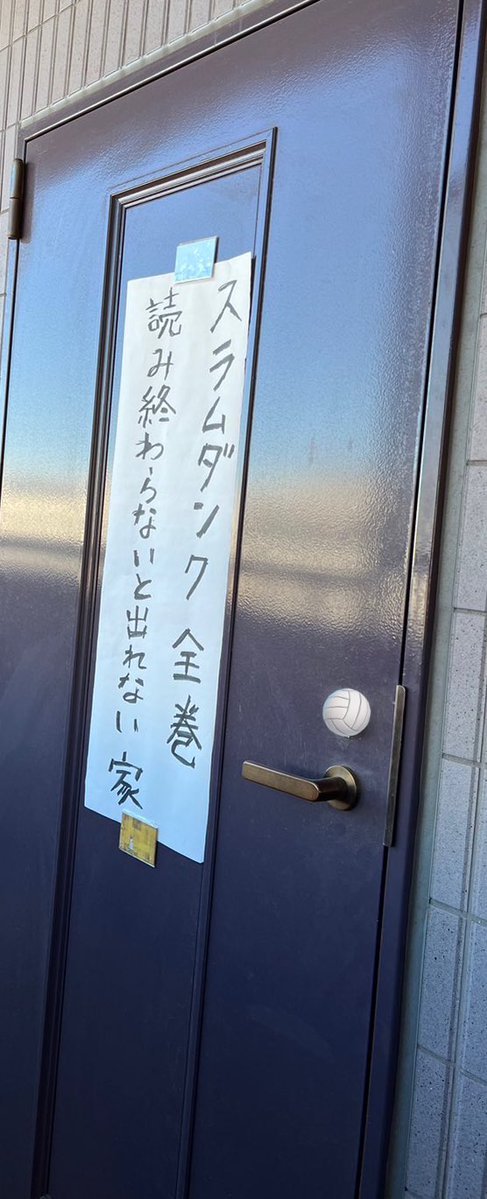 スラムダンク全巻
読み終わらないと出れない家